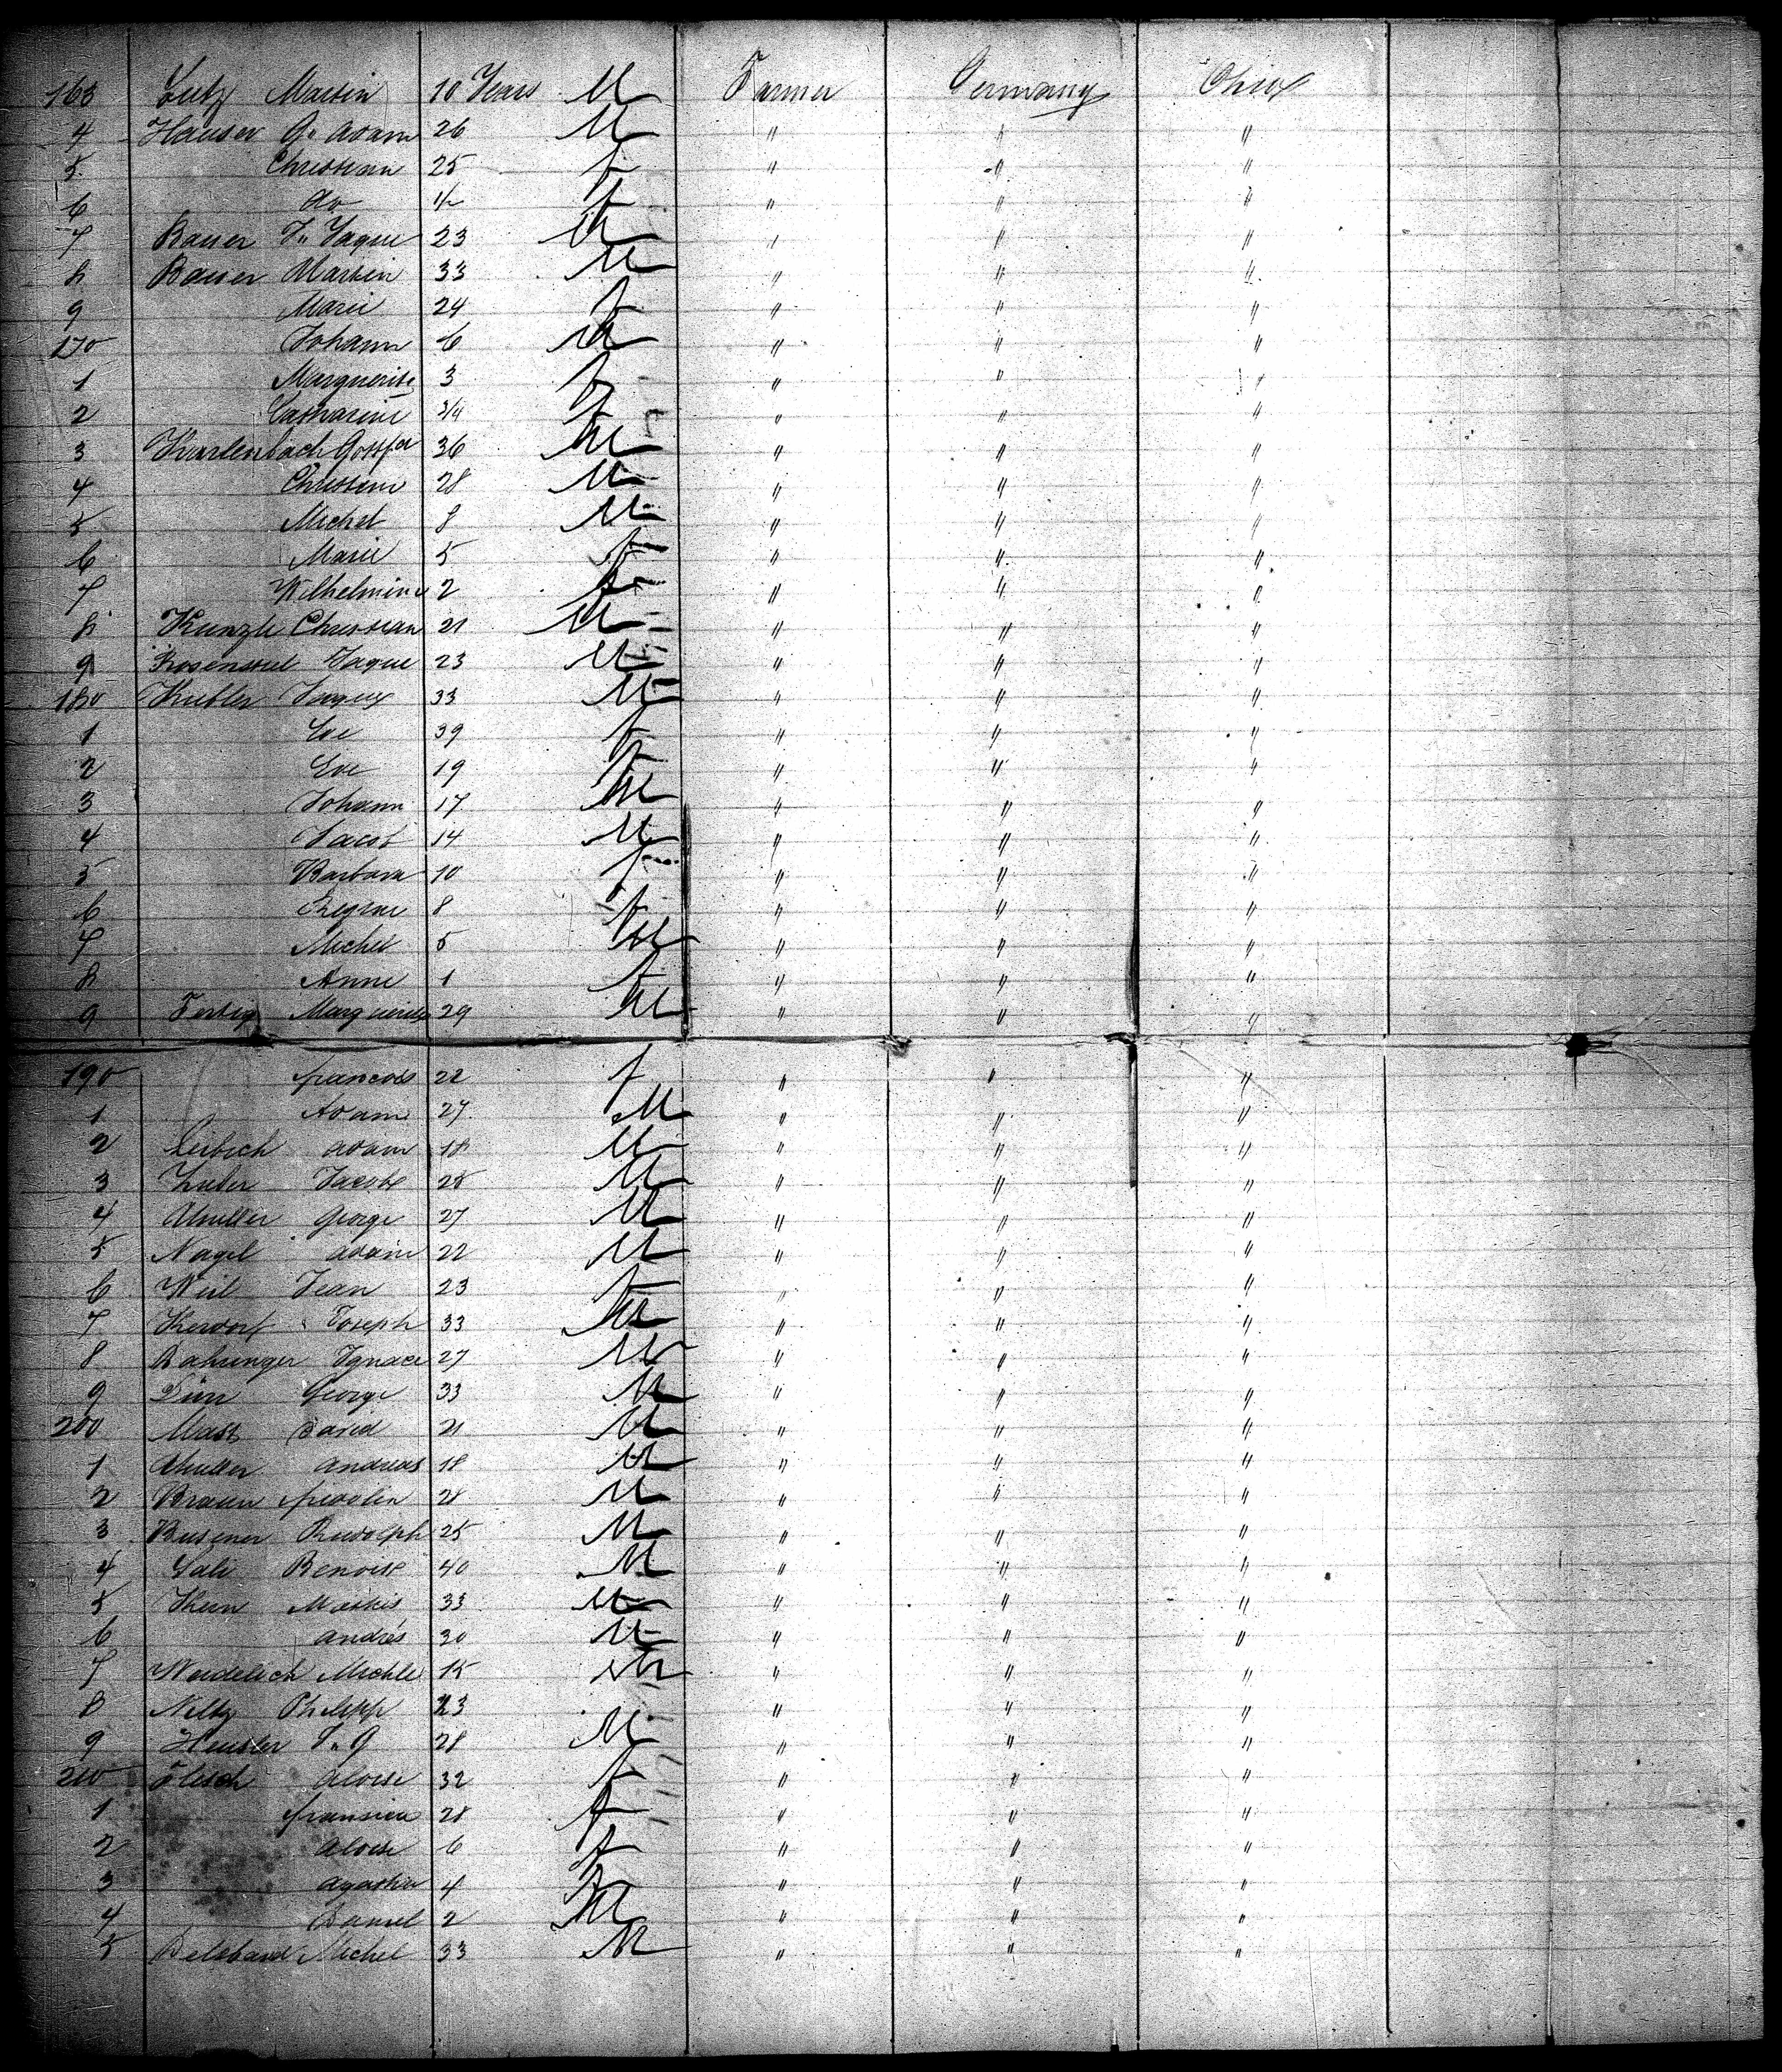 163 Lutz Martin 10 Years M Farmer Germany Ohio
4 Hauser G. Adam 26 M " " "
5 Christian 25 f " " "
6 do 1/2 f " " "
7 Bauer J. Jaque 23 M " " "
8 Bauer Martin 33 M " " "
9 Marie 24 f " " "
170 Johann 6 M " " "
1 Marguerite 3 f " " "
2 Catharine 3/4 f " " "
3 36 M " " "
4 Christine 28 M " " "
5 Michel 8 M " " "
6 Marie 5 f " " "
7 Wilhelmine 2 f " " "
8 Kunzle Christian 21 M " " "
9 Jaque 23 M " " "
180 Kubler Jaques 33 M " " "
1 Eve 39 f " " "
2 Eve 19 f " " "
3 Johann 17 M " " "
4 Jacob 14 M " " "
5 Barbara 10 f " " "
6 Regine 8 f " " "
7 Michel 5 M " " "
8 Anne 1 f " " "
9 Fertig Marguerite 29 M " " "
190 francois 22 f " " "
1 Adam 27 M " " "
2 Leibich adam 18 M " " "
3 Jacob 28 M " " "
4 Muller George 27 M " " "
5 Nagel adam 22 M " " "
6 Weil Jean 23 f " " "
7 Joseph 33 M " " "
8 Bahringer Ignace 27 M " " "
9 Dürr George 33 M " " "
200 Mast David 21 M " " "
1 Muller andreas 18 M " " "
2 Braun fridolin 28 M " " "
3 Rudolph 25 M " " "
4 Sali Benoist 40 M " " "
5 Kern 33 M " " "
6 andrés 30 M " " "
7 Weidelich Michle 15 M " " "
8 Philipp 23 " " "
9 Heusler J. G 28 M " " "
210 aloise 32 f " " "
1 28 f " " "
2 aloise 6 f " " "
3 agatha 4 f " " "
4 Daniel 2 M " " "
5 Michel 33 M " " "